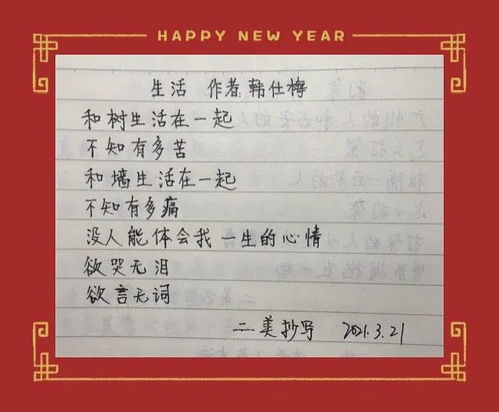 HAPPY NEW YEAR
生活 作者:韩仕梅
和树生活在一起
不知有多苦
和墙生活在一起
不知有多痛
没人能体会我一生的心情
欲哭无泪
欲言无词
二美抄写 2021.3.21